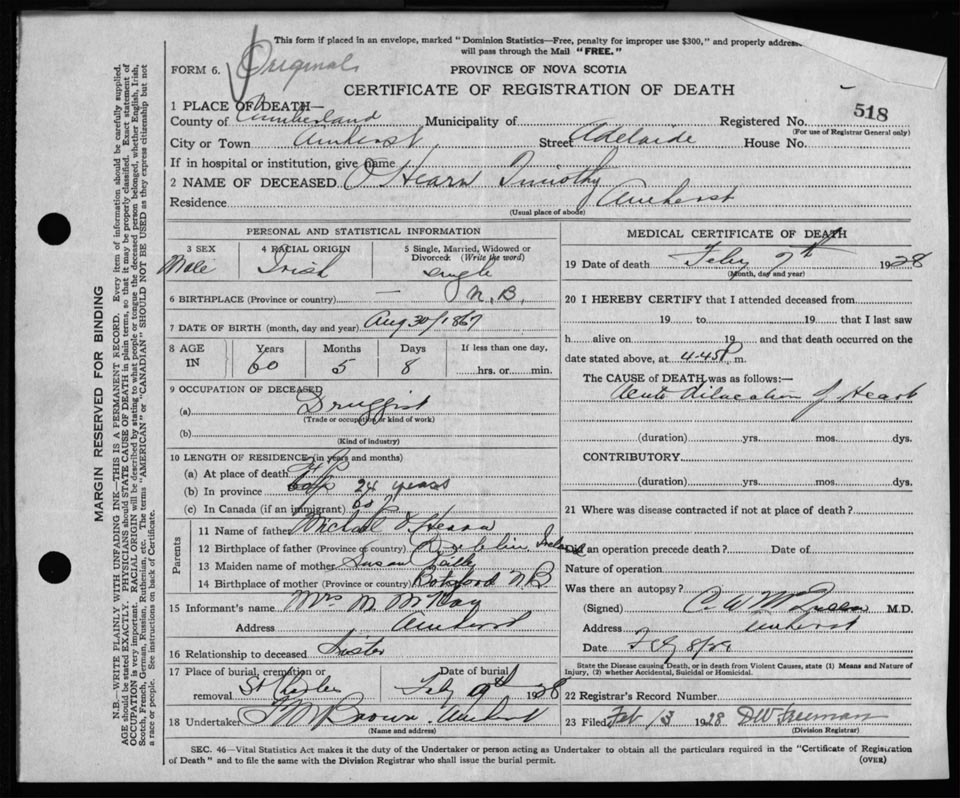 Original
This form if placed in an envelope, marked "Dominion Statistics—Free, penalty for improper use $300," and properly address
will pass through the Mail "FREE."
FORM 6.
PROVINCE OF NOVA SCOTIA
CERTIFICATE OF REGISTRATION OF DEATH
1 PLACE OF DEATH—
County of Cumberland Municipality of Registered No. 518
(For use of Registrar General only)
City or Town Amherst Street Adelaide House No.
If in hospital or institution, give name
2 NAME OF DECEASED O'Hearn Timothy
Residence Amherst
(Usual place of abode)
PERSONAL AND STATISTICAL INFORMATION
3 SEX 4 RACIAL ORIGIN 5 Single, Married, Widowed or Divorced (Write the word)
Male Irish Single
6 BIRTHPLACE (Province or country) — N.B.
7 DATE OF BIRTH (month, day and year) Aug 30/1867
8 AGE IN Years Months Days If less than one day,
60 5 8 hrs. or min.
9 OCCUPATION OF DECEASED
(a) Druggist
(Trade or occupation or kind of work)
(b)
(Kind of industry)
10 LENGTH OF RESIDENCE (in years and months)
(a) At place of death
(b) In province 24 years
(c) In Canada (if an immigrant) 60
Parents
11 Name of father Michael O'Hearn
12 Birthplace of father (Province or country) Ireland
13 Maiden name of mother Susan
14 Birthplace of mother (Province or country) Botsford N.B
15 Informant's name Mrs M McKay
Address Amherst
16 Relationship to deceased Sister
17 Place of burial, cremation or removal St Charles Date of burial Feby 1928
18 Undertaker Brown Amherst
(Name and address)
MEDICAL CERTIFICATE OF DEATH
19 Date of death Feby 7th 1928
(Month, day and year)
20 I HEREBY CERTIFY that I attended deceased from
19 to 19 that I last saw
h alive on 19 and that death occurred on the
date stated above, at 4.45 P. m.
The CAUSE of DEATH was as follows:—
Acute dilatation of Heart
(duration) yrs. mos. dys.
CONTRIBUTORY
(duration) yrs. mos. dys.
21 Where was disease contracted if not at place of death?
Did an operation precede death? Date of
Nature of operation
Was there an autopsy?
(Signed) M.D.
Address Amherst
Date
State the Disease causing Death, or in death from Violent Causes, state (1) Means and Nature of
Injury, (2) whether Accidental, Suicidal or Homicidal.
22 Registrar's Record Number
23 Filed Feb 13 1928 D W Freeman
(Division Registrar)
SEC. 46—Vital Statistics Act makes it the duty of the Undertaker or person acting as Undertaker to obtain all the particulars required in the "Certificate of Registration
of Death" and to file the same with the Division Registrar who shall issue the burial permit.
(OVER)
MARGIN RESERVED FOR BINDING
N.B.—WRITE PLAINLY WITH UNFADING INK—THIS IS A PERMANENT RECORD. Every item of information should be carefully supplied.
AGE should be stated EXACTLY. PHYSICIANS should STATE CAUSE OF DEATH in plain terms, so that it may be properly classified. Exact statement of
OCCUPATION is very important. RACIAL ORIGIN will be described by stating to what people or tongue the deceased person belonged, whether English, Irish,
Scotch, French, German, Russian, Ruthenian, etc. The terms "AMERICAN" or "CANADIAN" SHOULD NOT BE USED as they express citizenship but not
a race or people. See instructions on back of Certificate.